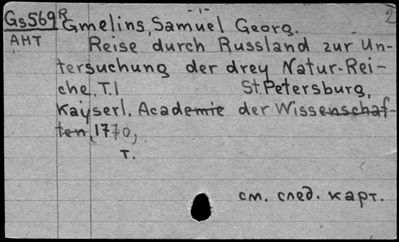 - 1 -
Gs569R Gmelins, Samuel Georg.
АНТ Reise durch Russland zur Un-
tersuchung der drey Natur-Rei-
che. T.I St.Petersburg,
Kayserl. Academie der Wissenschaf-
ten, 1770,
т.
см. след. карт.